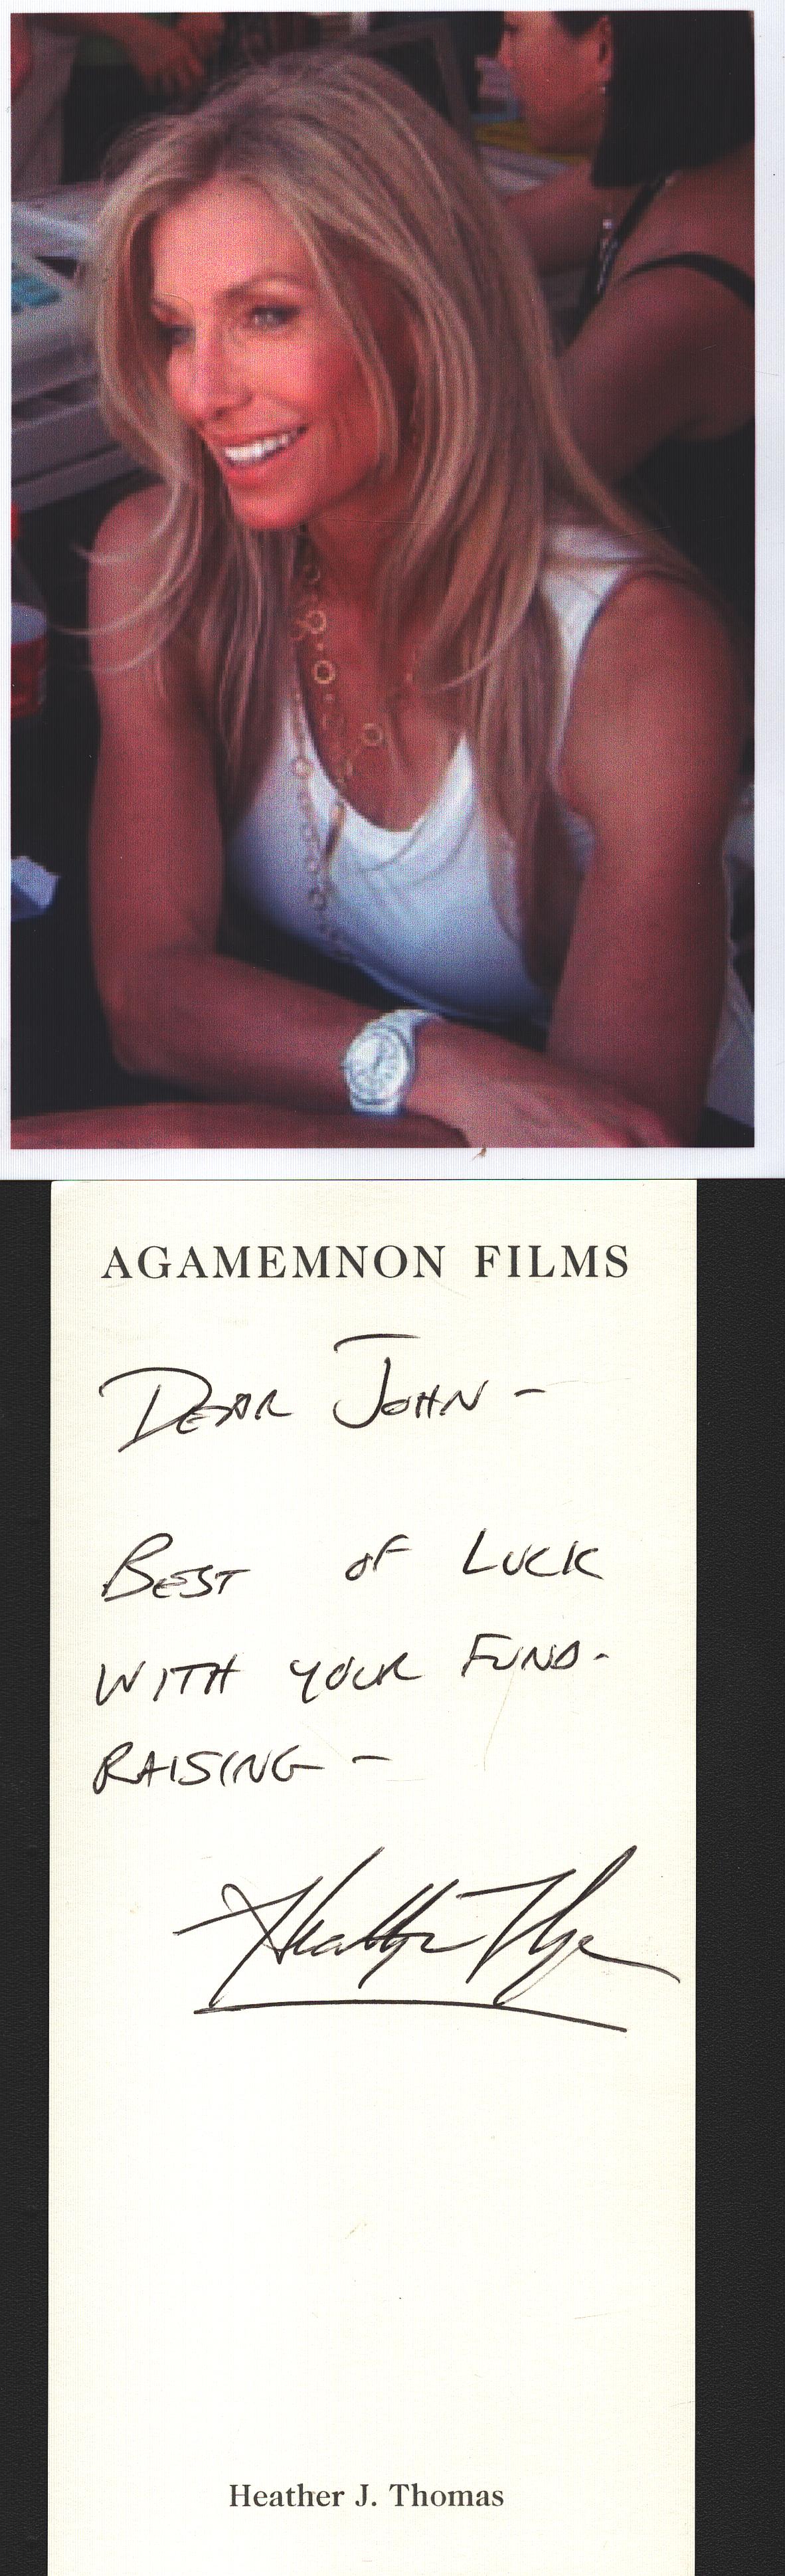 AGAMEMNON FILMS
DEAR JOHN -
BEST OF LUCK
WITH YOUR FUND-
RAISING -
Heather J. Thomas